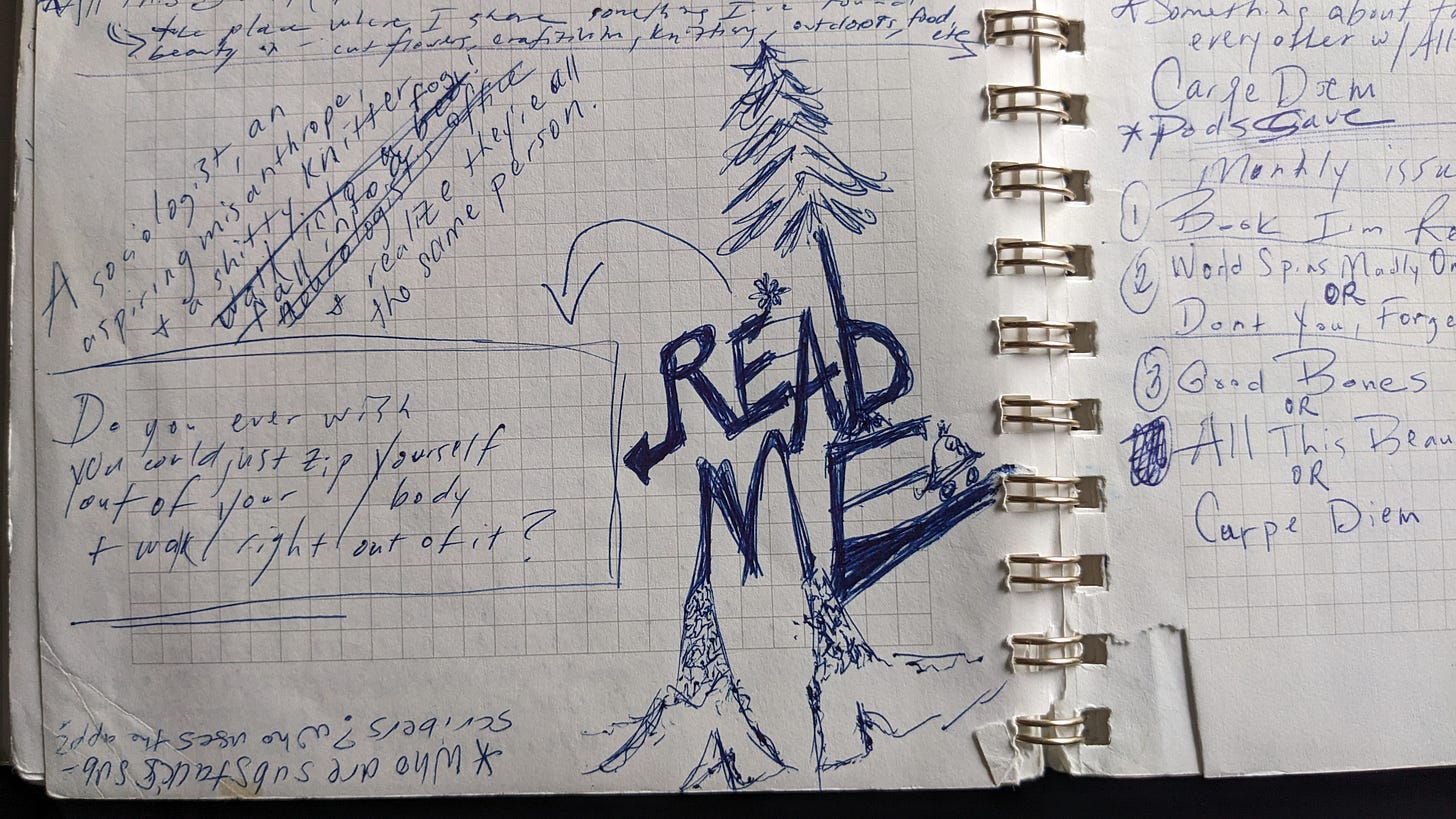 the place where I share something I've found
beauty in - cut flowers, knitting, outdoors, food, etc
A sociologist, an
aspiring misanthrope,
+ a shitty knitter
realize they're all
the same person.
READ
ME
Do you ever wish
you could just zip yourself
out of your body
+ walk right out of it?
* Who are substack's sub-
scribers? Who uses the app?
* Something about
every other w/ All
Carpe Diem
* Pods Save
Monthly issu
① Book I'm Re
② World Spins Madly On
OR
Dont You, Forge
③ Good Bones
OR
All This Beau
OR
Carpe Diem